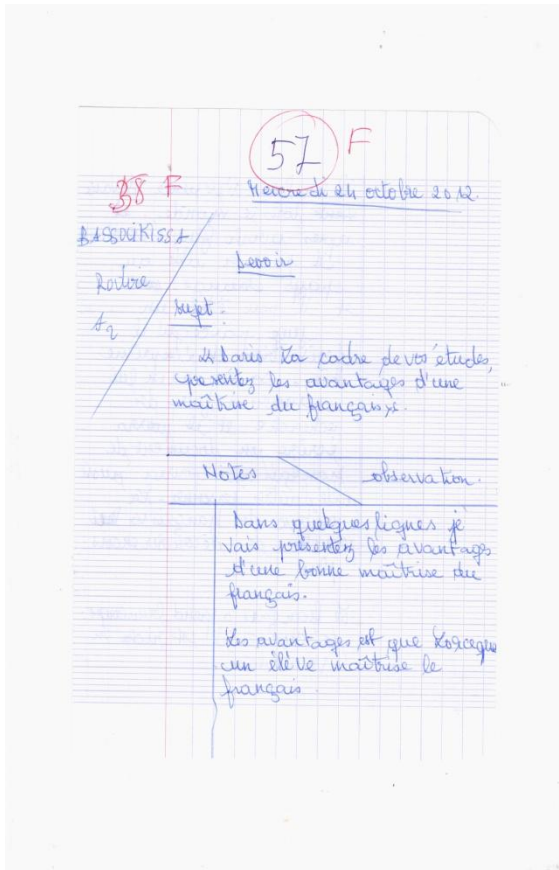 57 F
38 F
Mercredi 24 octobre 2012.
BASSOUKISSA
Devoir
A2
Sujet :
« Dans La cadre de vos études,
presentez les avantages d'une
maîtrise du français ».
Notes observation.
Dans quelques lignes je
vais présentez les avantages
d'une bonne maîtrise du
français.
Les avantages est que Lorceque
un élève maîtrise le
français.